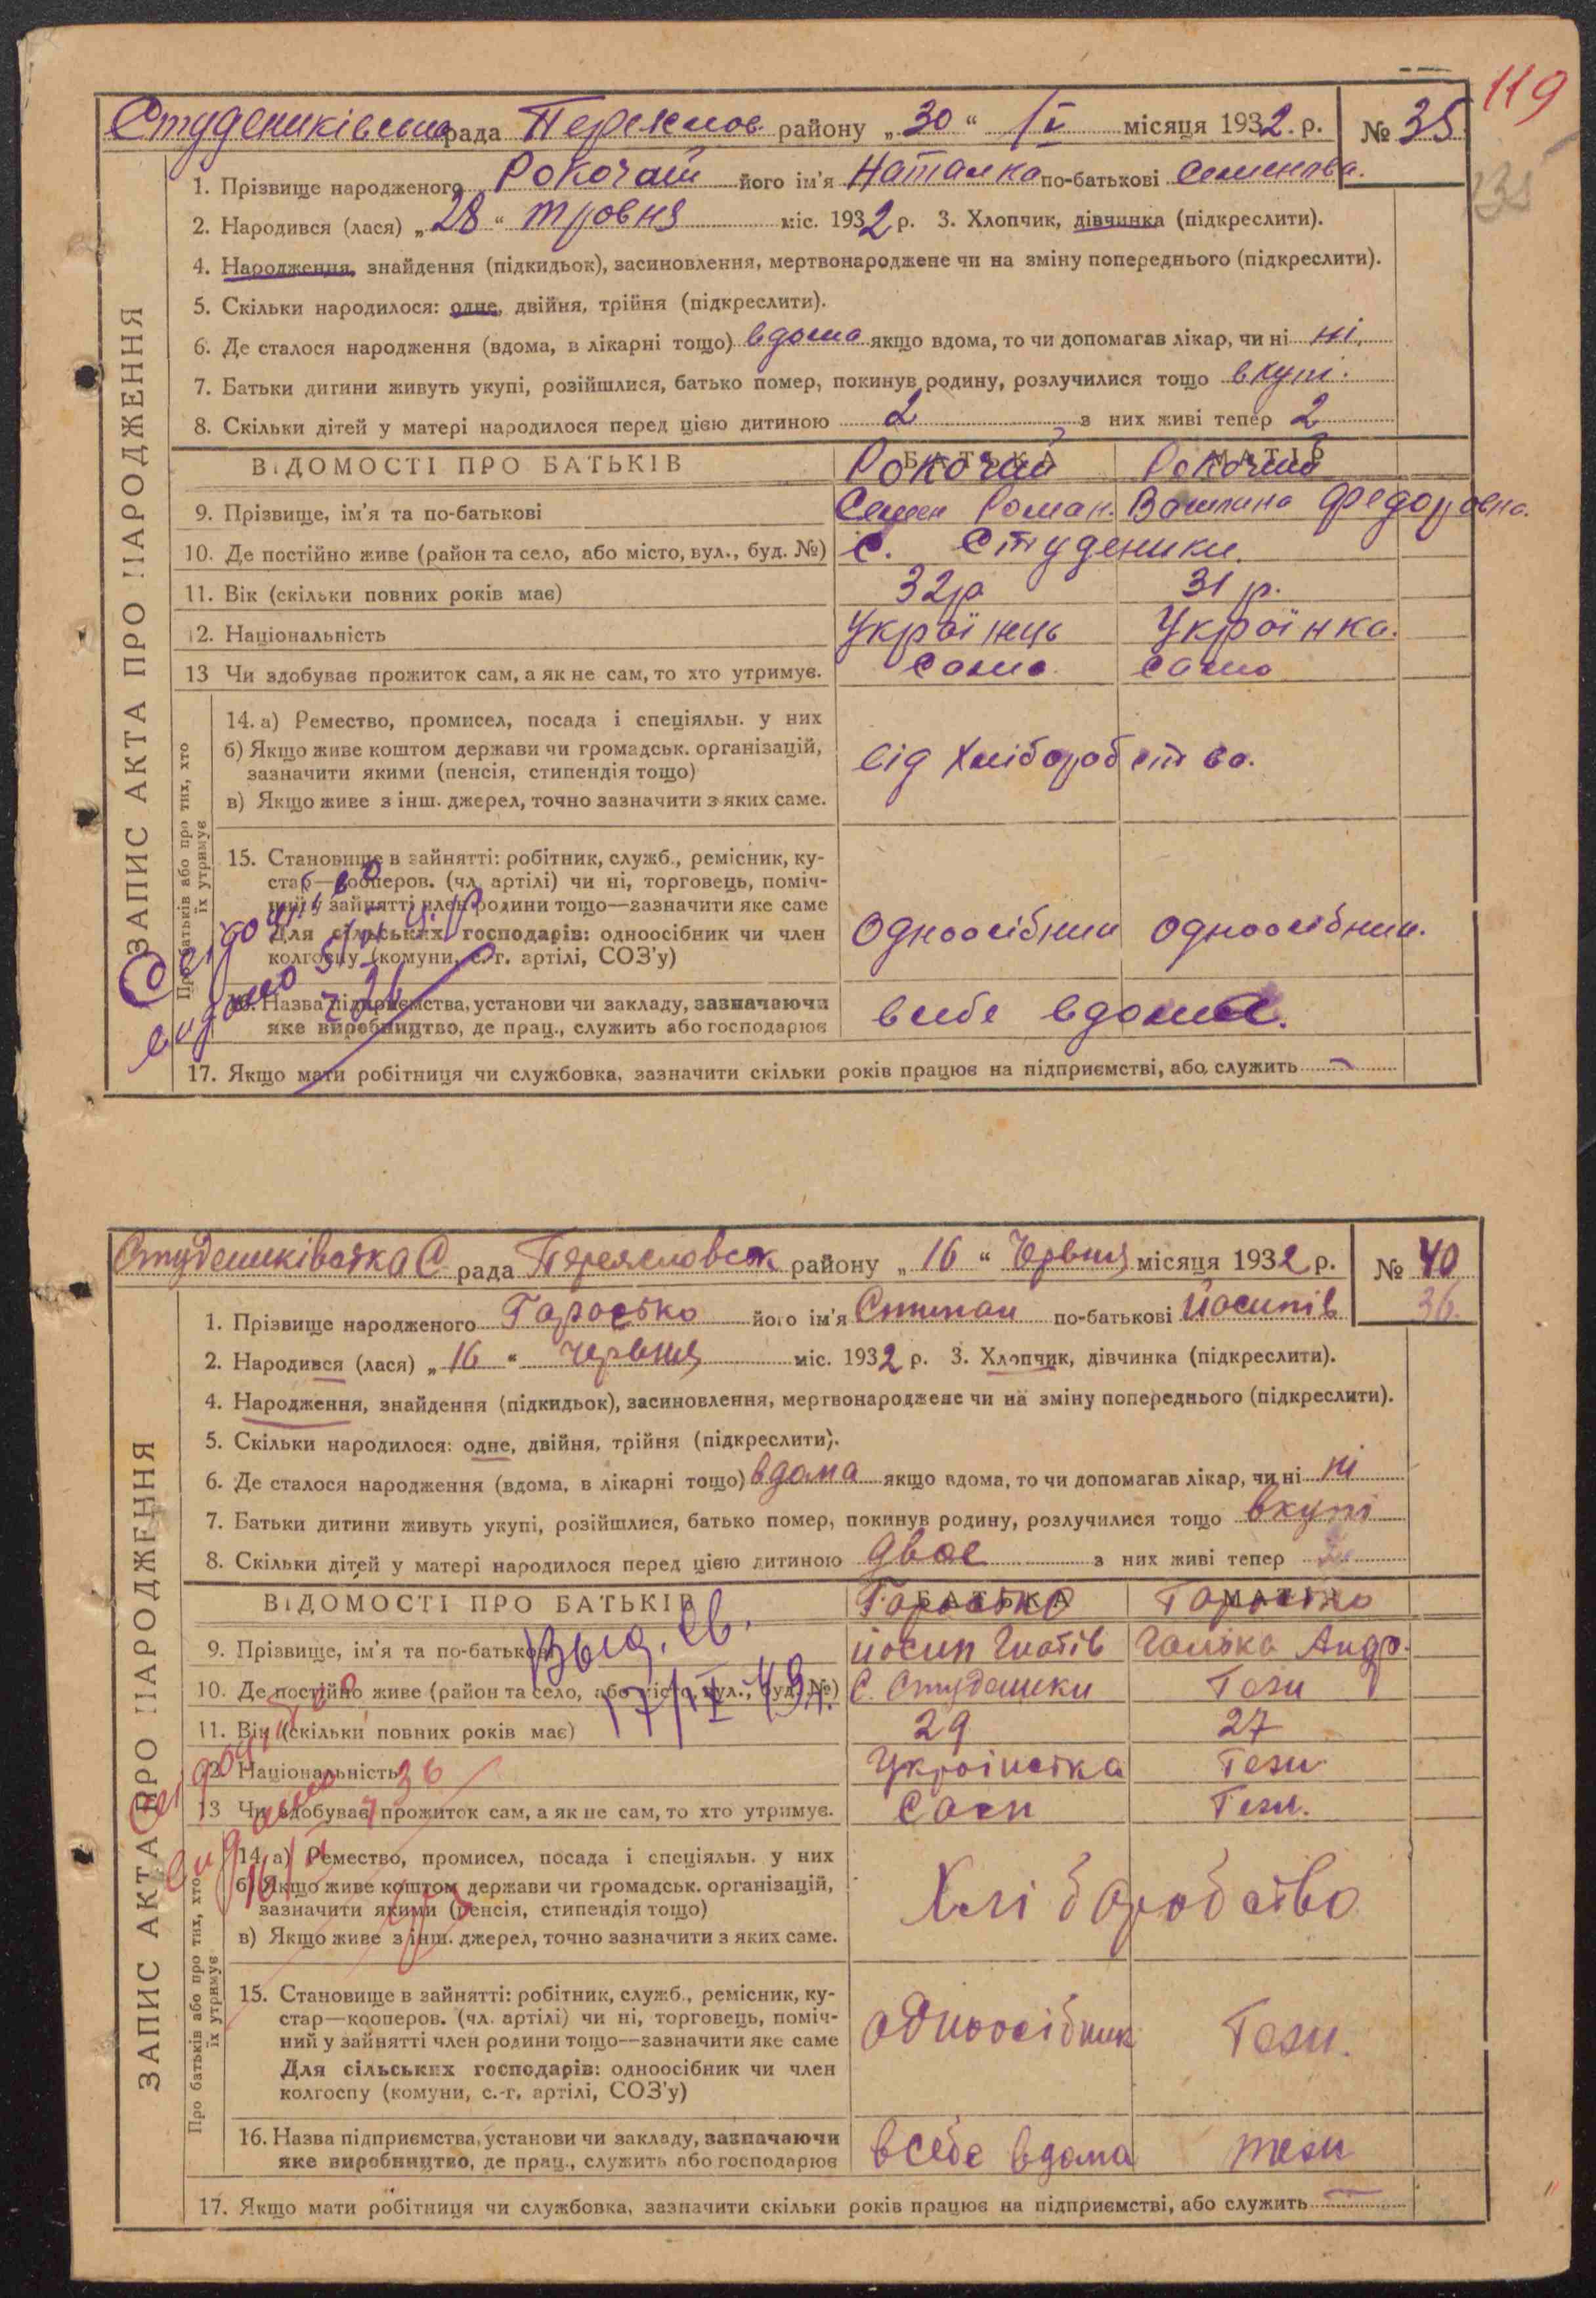 119
Студениківська рада Переяслов району „30“ IV місяця 1932 р. № 35
35
ЗАПИС АКТА ПРО НАРОДЖЕННЯ
1. Прізвище народженого Рокочай його ім'я Наталка по-батькові Семенова.
2. Народився (лася) „28“ тровня міс. 1932 р. 3. Хлопчик, дівчинка (підкреслити).
4. Народження, знайдення (підкидьок), засиновлення, мертвонароджене чи на зміну попереднього (підкреслити).
5. Скільки народилося: одне, двійня, трійня (підкреслити).
6. Де сталося народження (вдома, в лікарні тощо) вдома якщо вдома, то чи допомагав лікар, чи ні ні
7. Батьки дитини живуть укупі, розійшлися, батько помер, покинув родину, розлучилися тощо вкупі.
8. Скільки дітей у матері народилося перед цією дитиною 2 з них живі тепер 2
ВІДОМОСТІ ПРО БАТЬКІВ БАТЬКА МАТІР
Рокочай Рокочай
9. Прізвище, ім'я та по-батькові Семен Роман. Федоровна.
10. Де постійно живе (район та село, або місто, вул., буд. №) с. Студеники.
11. Вік (скільки повних років має) 32 р 31 р.
12. Національність Українець Українка.
13 Чи здобуває прожиток сам, а як не сам, то хто утримує. само само
Про батьків або про тих, хто їх утримує
14. а) Ремество, промисел, посада і спеціяльн. у них
б) Якщо живе коштом держави чи громадськ. організацій,
зазначити якими (пенсія, стипендія тощо) від хліборобства.
в) Якщо живе з інш. джерел, точно зазначити з яких саме.
15. Становище в зайнятті: робітник, служб., ремісник, ку-
стар—кооперов. (чл. артілі) чи ні, торговець, поміч-
ний у зайнятті член родини тощо—зазначити яке саме
Для сільських господарів: одноосібник чи член Одноосібник одноосібник.
колгоспу (комуни, с.-г. артілі, СОЗ'у)
16. Назва підприємства, установи чи закладу, зазначаючи
яке виробництво, де прац., служить або господарює в себе вдома.
17. Якщо мати робітниця чи службовка, зазначити скільки років працює на підприємстві, або служить —
видано
Студениківська С рада Переясловськ району „16“ Червня місяця 1932 р. № 40
36.
ЗАПИС АКТА ПРО НАРОДЖЕННЯ
1. Прізвище народженого Гаросько його ім'я Степан по-батькові Йосипів
2. Народився (лася) „16“ червня міс. 1932 р. 3. Хлопчик, дівчинка (підкреслити).
4. Народження, знайдення (підкидьок), засиновлення, мертвонароджене чи на зміну попереднього (підкреслити).
5. Скільки народилося: одне, двійня, трійня (підкреслити).
6. Де сталося народження (вдома, в лікарні тощо) вдома якщо вдома, то чи допомагав лікар, чи ні ні
7. Батьки дитини живуть укупі, розійшлися, батько помер, покинув родину, розлучилися тощо вкупі
8. Скільки дітей у матері народилося перед цією дитиною двоє з них живі тепер
ВІДОМОСТІ ПРО БАТЬКІВ БАТЬКА МАТІР
Гаросько Гаросько
Выд. св.
9. Прізвище, ім'я та по-батькові Йосип Гнатів Галька Андр.
10. Де постійно живе (район та село, або місто, вул., буд. №) С. Студеники Тези
17/IX 49 г.
11. Вік (скільки повних років має) 29 27
12. Національність Українська Тези
13 Чи здобуває прожиток сам, а як не сам, то хто утримує. Сам Тези.
видано 36
Про батьків або про тих, хто їх утримує
14. а) Ремество, промисел, посада і спеціяльн. у них
б) Якщо живе коштом держави чи громадськ. організацій,
зазначити якими (пенсія, стипендія тощо) Хліборобство
в) Якщо живе з інш. джерел, точно зазначити з яких саме.
15. Становище в зайнятті: робітник, служб., ремісник, ку-
стар—кооперов. (чл. артілі) чи ні, торговець, поміч-
ний у зайнятті член родини тощо—зазначити яке саме одноосібник Тези.
Для сільських господарів: одноосібник чи член
колгоспу (комуни, с.-г. артілі, СОЗ'у)
16. Назва підприємства, установи чи закладу, зазначаючи
яке виробництво, де прац., служить або господарює в себе вдома тези
17. Якщо мати робітниця чи службовка, зазначити скільки років працює на підприємстві, або служить —